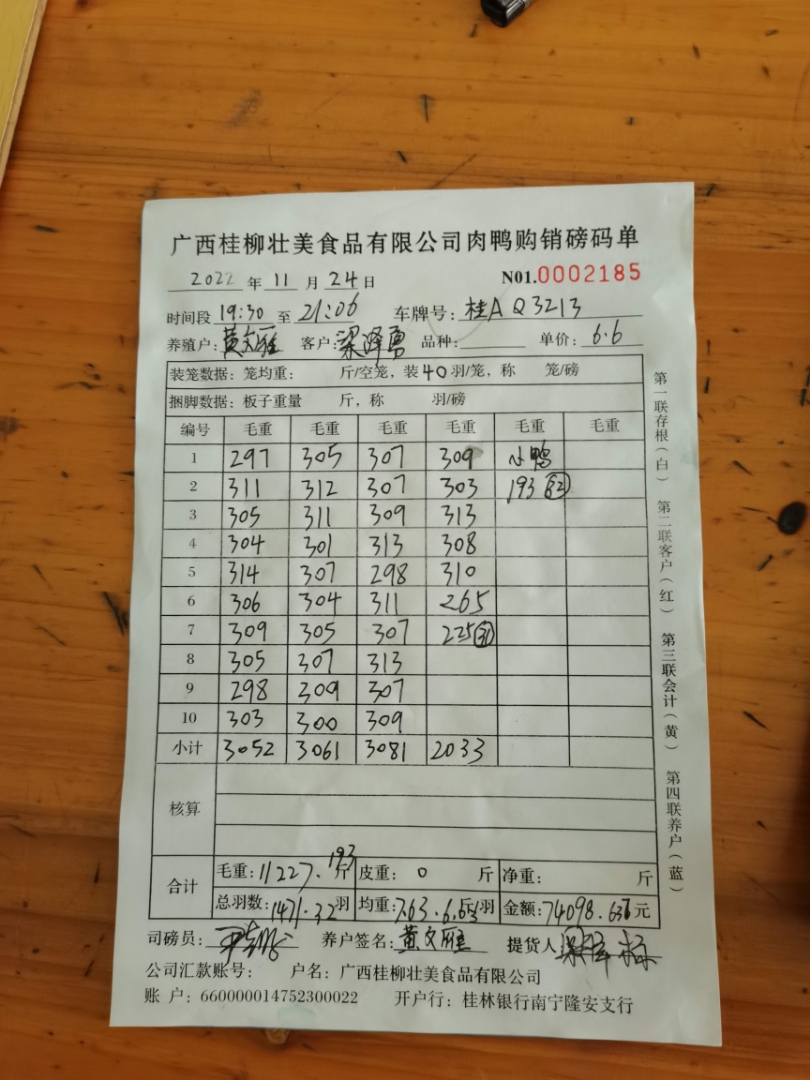 广西桂柳壮美食品有限公司肉鸭购销磅码单
2022 年 11 月 24 日 N01.0002185
时间段 19:30 至 21:06 车牌号: 桂A Q3213
养殖户: 黄文雁 客户: 梁泽勇 品种: 单价: 6.6
装笼数据: 笼均重: 斤/空笼, 装 40 羽/笼, 称 笼/磅
捆脚数据: 板子重量 斤, 称 羽/磅
编号 毛重 毛重 毛重 毛重 毛重 毛重
1 297 305 307 309 小鸭
2 311 312 307 303 193
3 305 311 309 313
4 304 301 313 308
5 314 307 298 310
6 306 304 311 265
7 309 305 307 225 31
8 305 307 313
9 298 309 307
10 303 300 309
小计 3052 3061 3081 2033
核算
合计 毛重: 11227.193 斤 皮重: 0 斤 净重: 斤
总羽数: 1471.32 羽 均重: 7.63. 斤/羽 金额: 74098. 元
司磅员: 养户签名: 黄文雁 提货人
公司汇款账号: 户名: 广西桂柳壮美食品有限公司
账 户: 660000014752300022 开户行: 桂林银行南宁隆安支行
第一联存根(白) 第二联客户(红) 第三联会计(黄) 第四联养户(蓝)